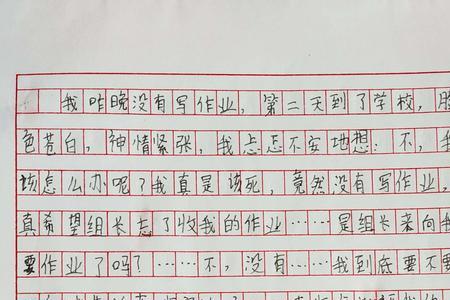 我昨晚没有写作业，第二天到了学校，脸
色苍白，神情紧张，我忐忑不安地想：不，我
该怎么办呢？我真是该死，竟然没有写作业，
真希望组长忘了收我的作业……是组长来向我
要作业了吗？……不，没有……我到底要不要